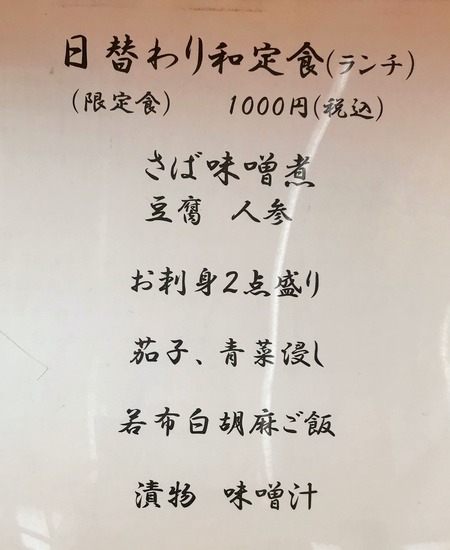 日替わり和定食(ランチ)
(限定食) 1000円(税込)
さば味噌煮
豆腐 人参
お刺身2点盛り
茄子、青菜浸し
若布白胡麻ご飯
漬物 味噌汁